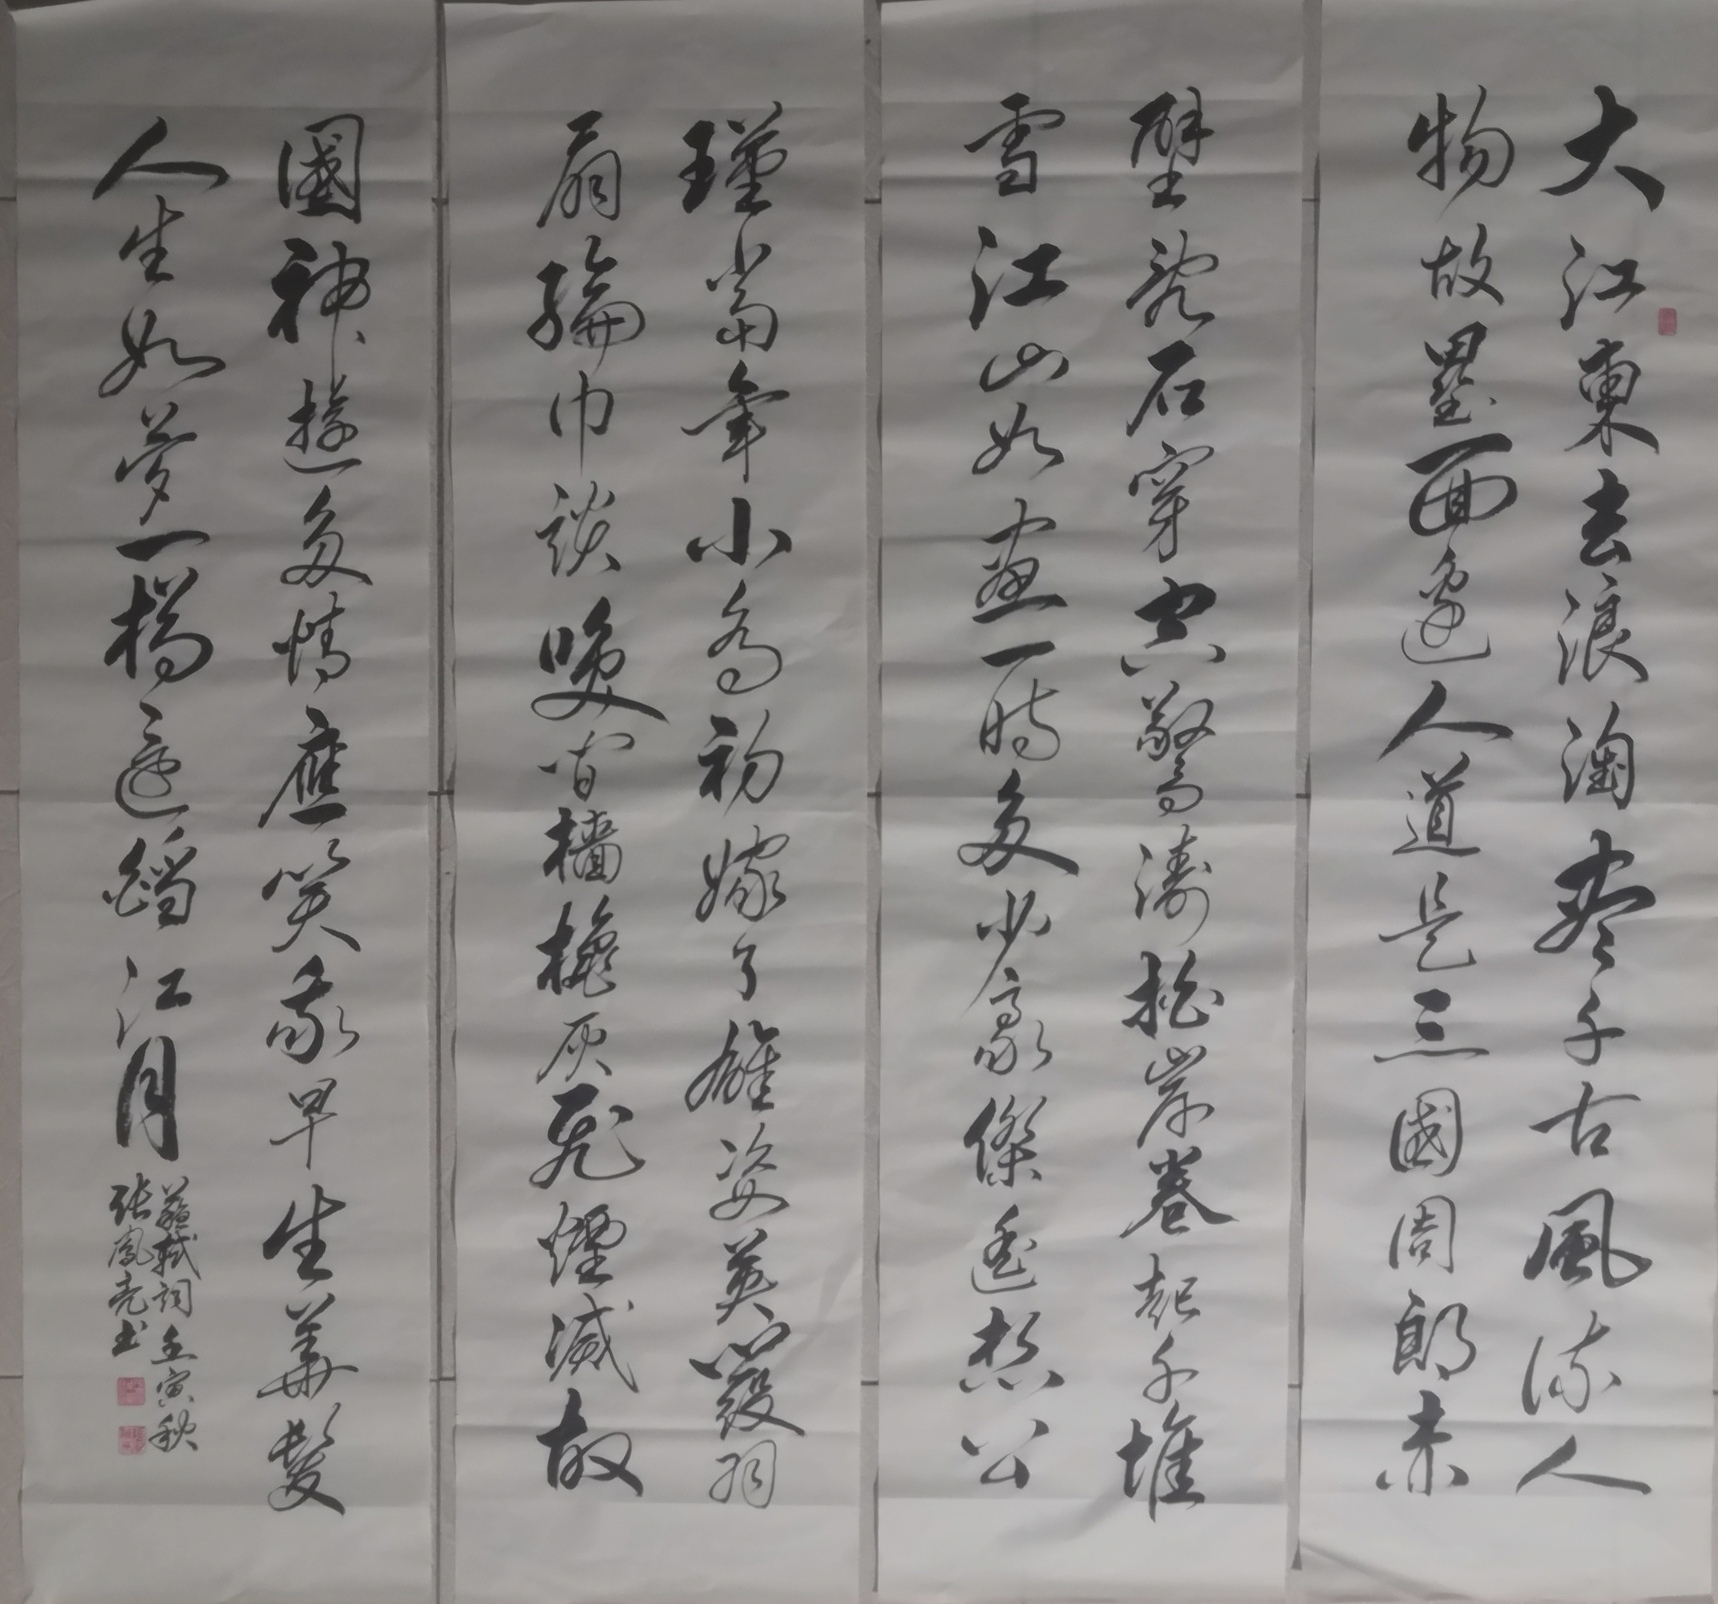 大江東去浪淘盡千古風流人
物故壘西邊人道是三國周郎赤
壁亂石穿空驚濤拍岸卷起千堆
雪江山如畫一時多少豪傑遙想公
瑾當年小喬初嫁了雄姿英發羽
扇綸巾談咲間檣櫓灰飛煙滅故
國神遊多情應笑我早生華髮
人生如夢一樽還酹江月
蘇軾詞壬寅秋
张鳳亮书